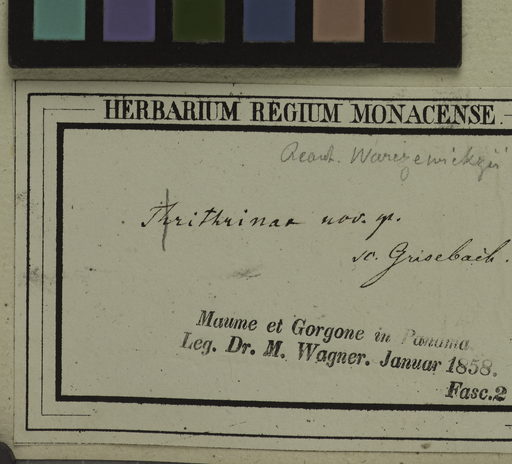 HERBARIUM REGIUM MONACENSE.
Acanth. Warczewickzii
Thrithrinax nov. sp.
sc. Grisebach.
Maume et Gorgone in Panama
Leg. Dr. M. Wagner. Januar 1858.
Fasc.2